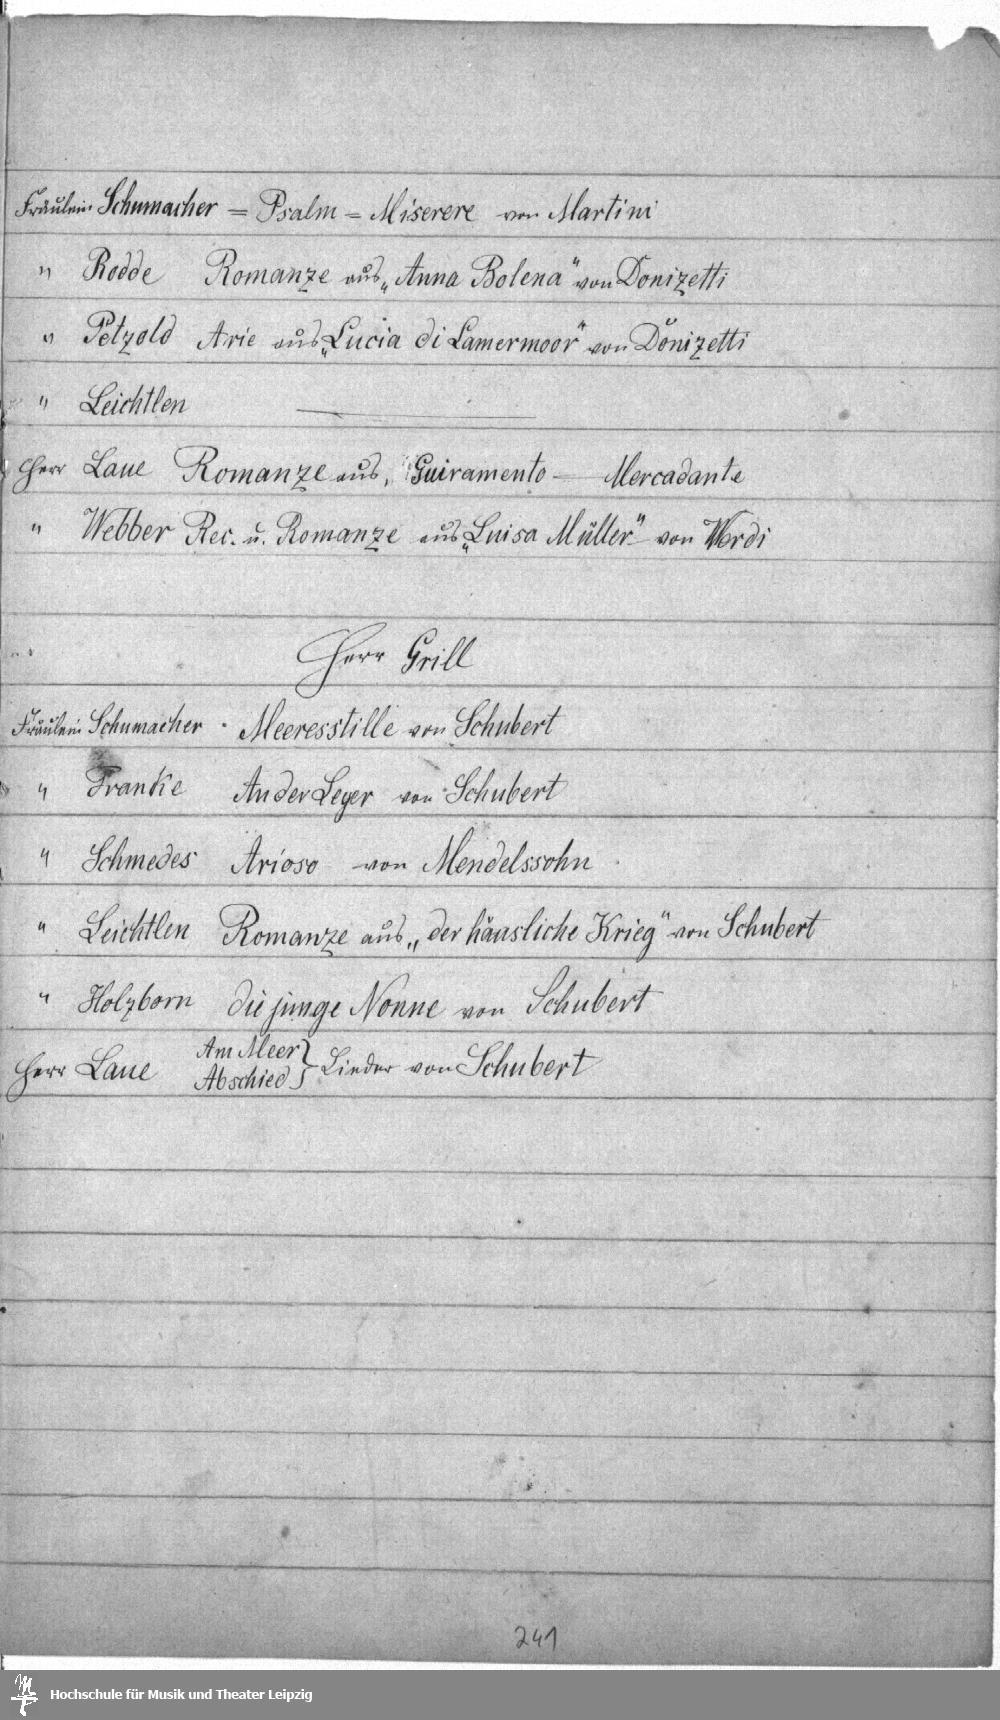 Fräulein Schumacher = Psalm = Miserere von Martini
" Rodde Romanze aus „Anna Bolena" von Donizetti
" Petzold Arie aus „Lucia di Lamermoor" von Donizetti
" Leichtlen
Herr Laue Romanze aus, Guiramento — Mercadante
" Webber Rec. u. Romanze aus „Luisa Müller" von Werdi
Herr Grill
Fräulein Schumacher Meeresstille von Schubert
" Franke An der Leyer von Schubert
" Schmedes Arioso von Mendelssohn
" Leichtlen Romanze aus „der häusliche Krieg" von Schubert
" Holzborn die junge Nonne von Schubert
Herr Laue Am Meer Abschied } Lieder von Schubert
241
Hochschule für Musik und Theater Leipzig